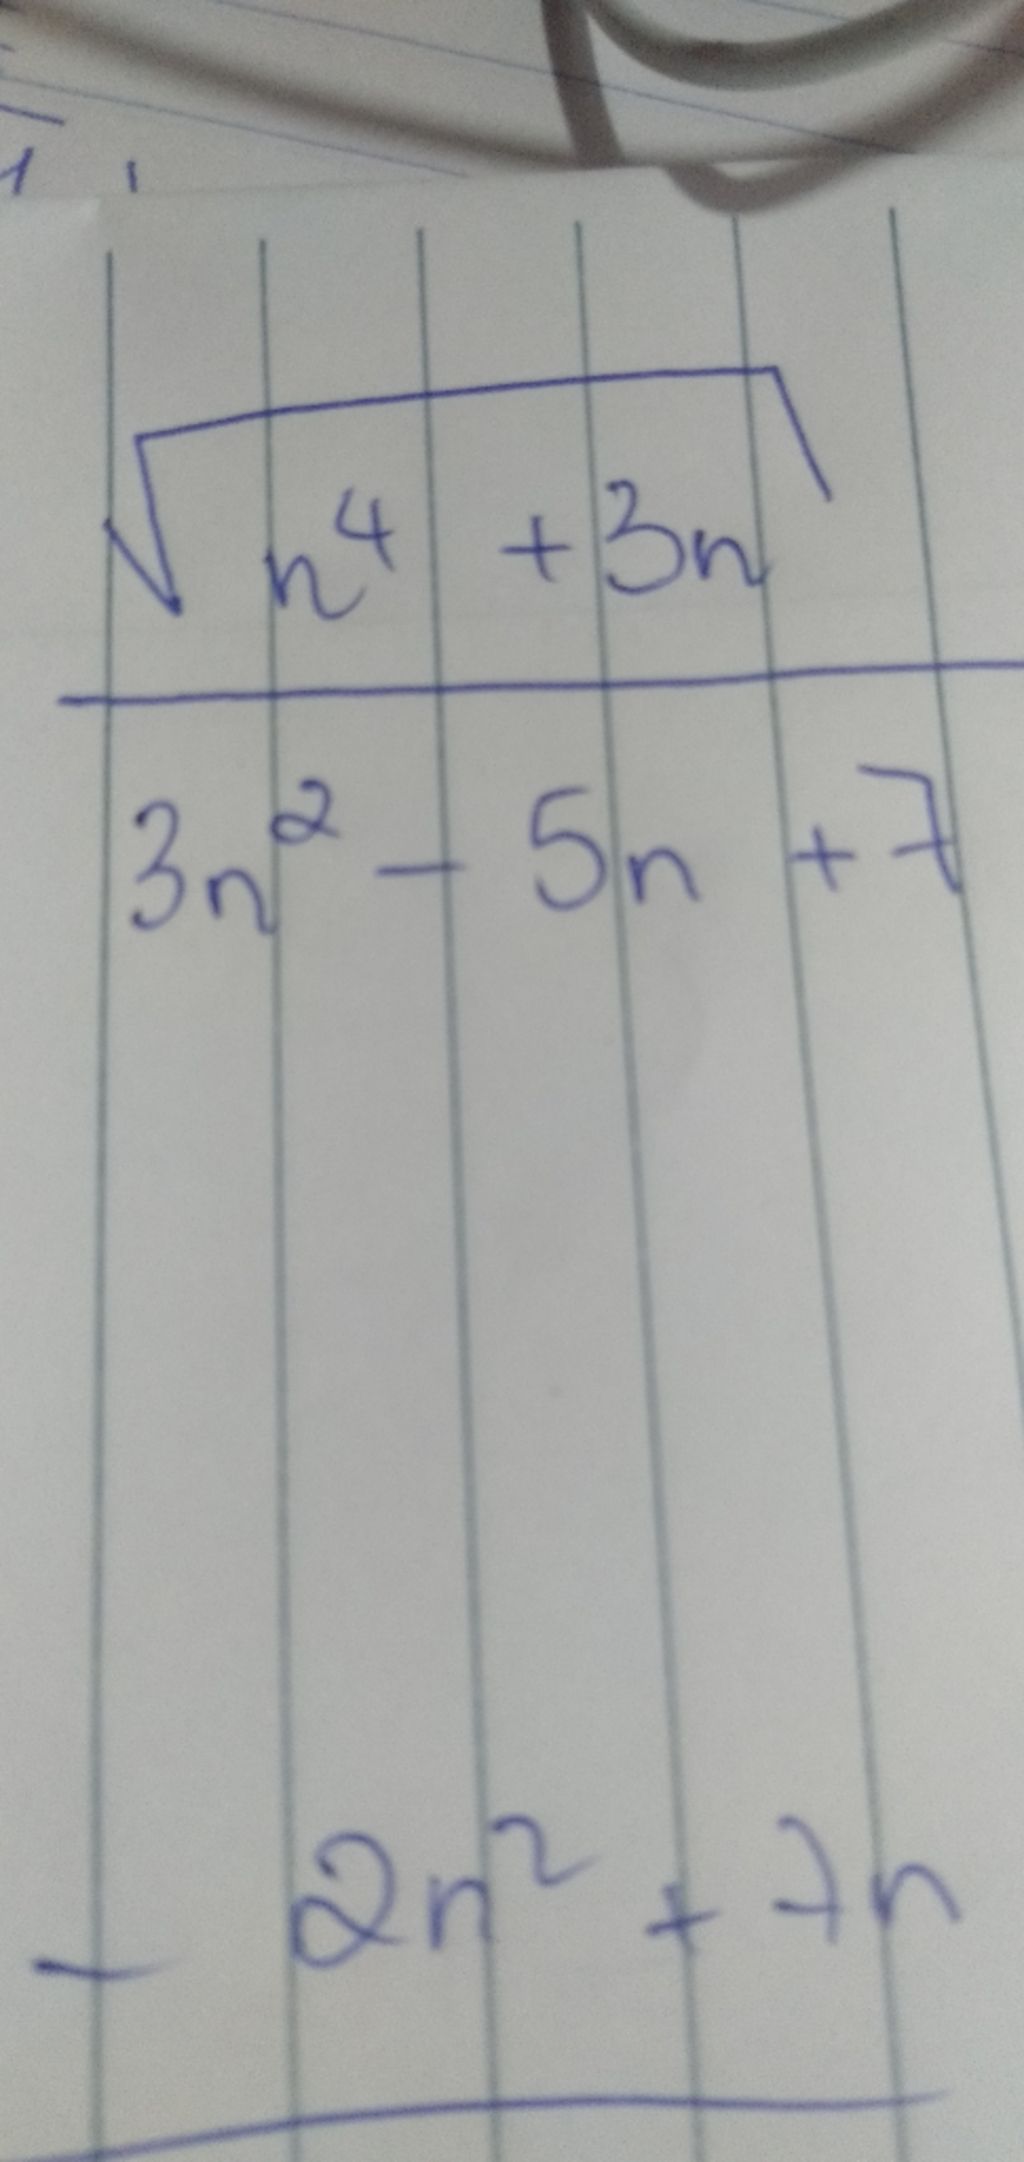 √(n⁴ + 3n)
3n² - 5n + 7
- 2n² + 7n